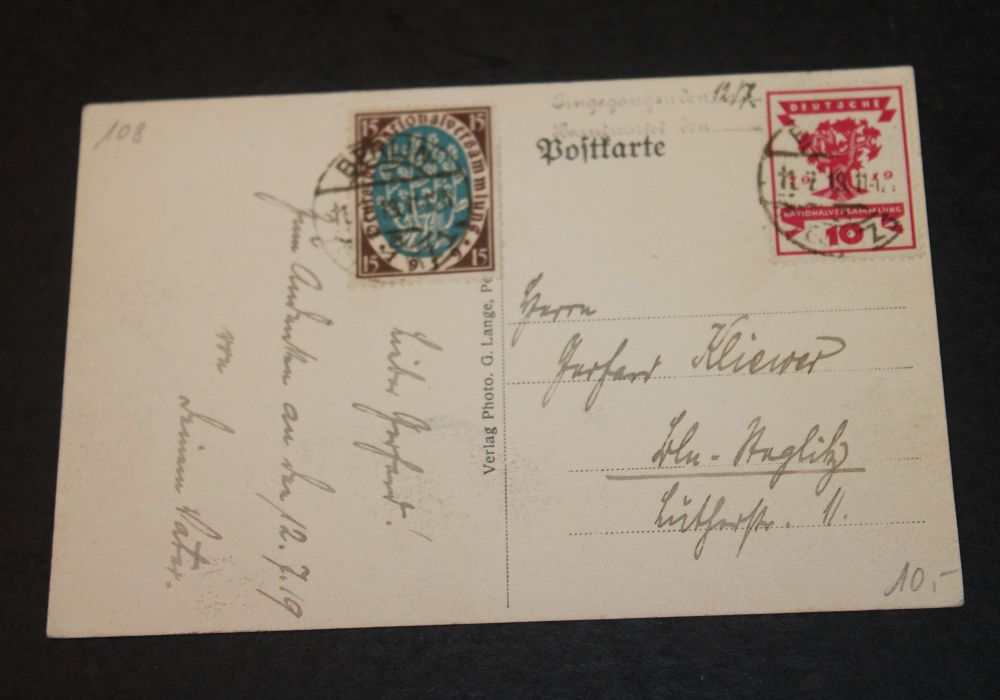 108
15 15
Deutsche Nationalversammlung
1919
15 15
BERLIN
Lieber Gerhard!
Zum Andenken an den 12.7.19
von
Deinem Vater.
Verlag Photo. G. Lange,
Eingegangen den 12/7.
Beantwortet den
Postkarte
DEUTSCHE
1919
NATIONALVERSAMMLUNG
10
11.7.19.11-12
Herrn
Gerhard Kliewer
Bln-Steglitz
Lutherstr. 11.
10.-